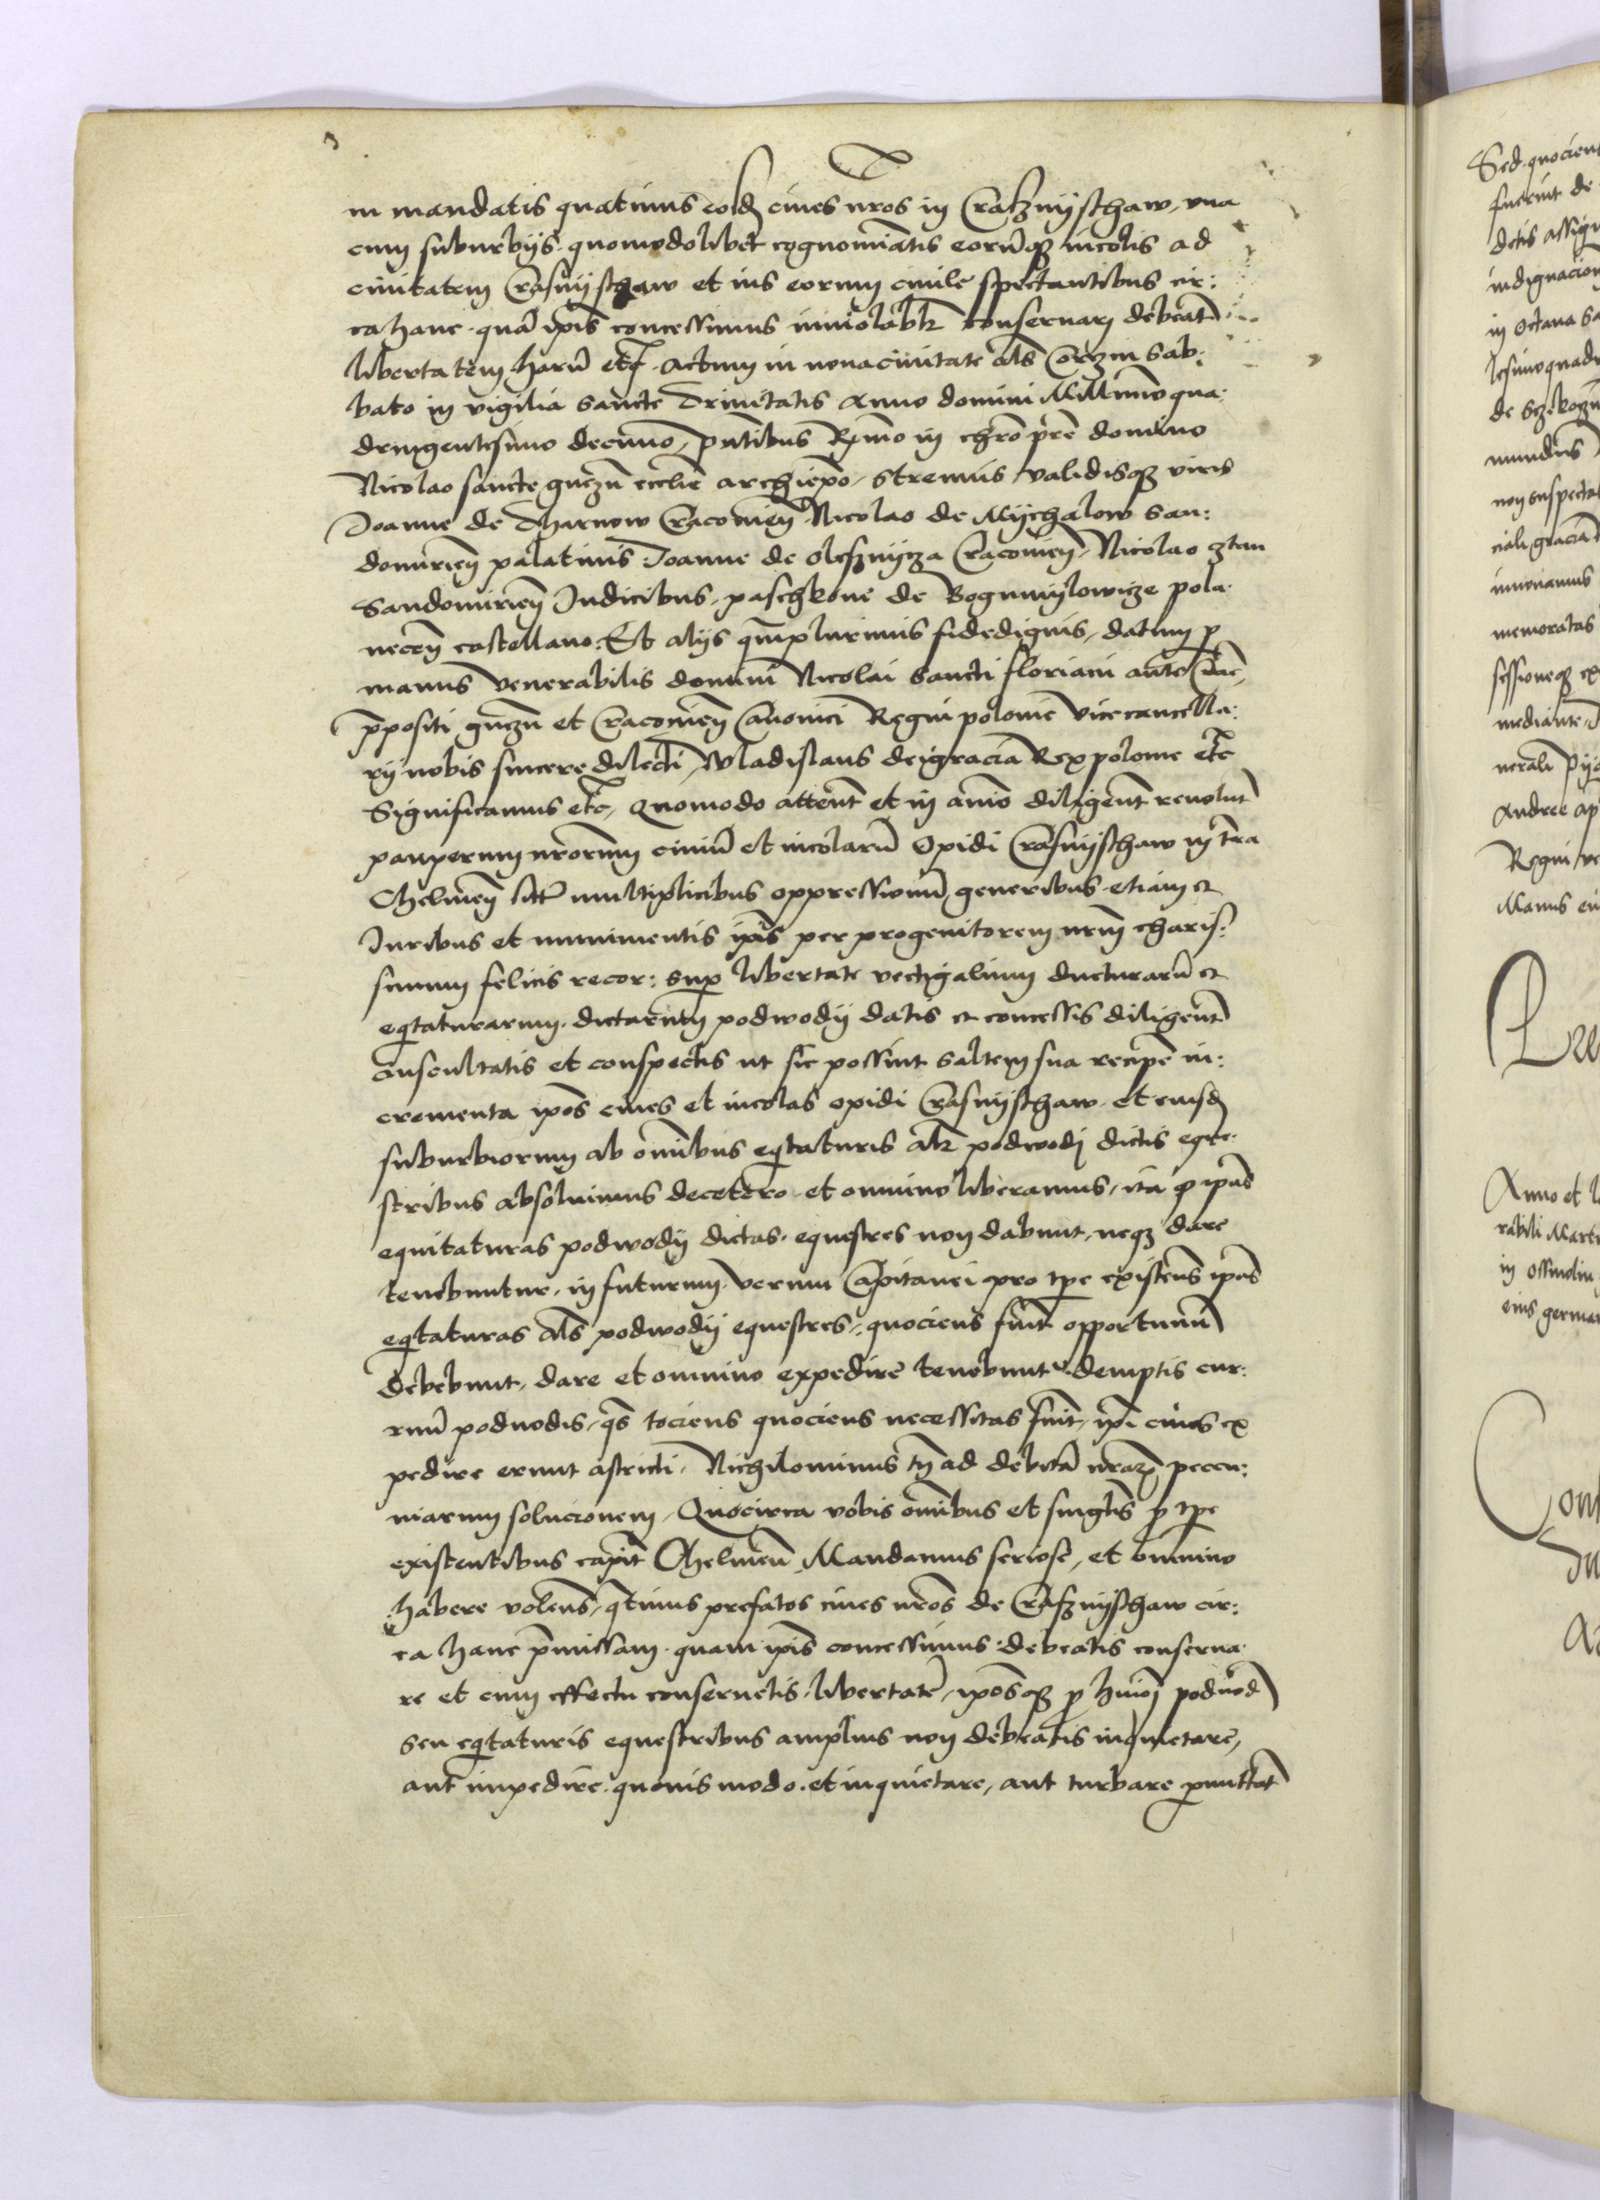 3
in mandatis quatinus eosdẽ ciues nros in Crasznyschaw, vna
cum suburbijs quomodolibet cognominatis eorũqꝫ incolis ad
ciuitatem Crasnyschaw et ius eorum ciuile spectantibus cir:
ca hanc quã ipis concessimus inuiolabilr conseruari debeatis
libertatem harũ etc. Actum in noua ciuitate als Corczin sab:
bato in vigilia sancte Trinitatis Anno domini Millimo qua:
dringentesimo decimo, pntibus Rmo in chro pre domino
Nicolao sancte gnezñ ecclie archiepo, Strenuis validisqꝫ viris
Joanne de Tharnow Cracouieñ Nicolao de Mychalow San:
domirieñ palatinis Joanne de olesznycza Cracouieñ, Nicolao
Sandomirieñ Judicibus, paschkone de Bogumylowicze pola:
neceñ castellano. Et alijs qmplurimis fidedignis, datum p
manus venerabilis domini Nicolai sancti floriani ante Crac,
ppositi gnezñ et Cracouieñ Canonici Regni polonie vicecancella:
rij nobis sincere dilecti, Wladislaus dei gracia Rex polonie etc
Significamus etc, Quomodo attent et in animo diligent reuolut
pauperum nrorum ciuiũ et incolarũ Opidi Crasnyschaw in terra
Chelmeñ siti multiplicibus oppressionũ generibus etiam et
Juribus et munimentis ipis per progenitorem nrm charis:
simum felicis recor: sup libertate vectigalium ducturarũ et
eqtaturarum dictarum podwody datis et concessis diligent
auscultatis et conspectis ut sic possint saltem sua recipe in:
crementa ipos ciues et incolas opidi Crasnyschaw et eiusdẽ
suburbiorum ab omibus eqtaturis als podwody dictis eque:
stribus absoluimus decetero et omnino liberamus, ita qp ipas
equitaturas podwody dictas equestres non dabunt, neqꝫ dare
tenebuntur, in futurum. verum Capitanei pro tpe existens ipas
eqtaturas als podwody equestres, quociens fuit opportunũ
debebunt, dare et omnino expedire tenebunt demptis cur:
ruũ podwodis, qs tociens quociens necessitas fuit, ipi ciues ex
pedire erunt astricti, Nichilominus tñ ad debitã nrarẽ peccu:
niarum solucionem, Quocirca vobis omibus et singlis p tpe
existentibus capit Chelmeñ, Mandamus seriose, et omnino
habere volens, qtinus prefatos ciues nros de Crasznyschaw cir:
ca hanc pmissam quam ipis concessimus debeatis conserua:
re et cum effectu conseruetis libertate, iposqꝫ p huiõi podwod
seu eqtaturis equestribus amplius non debeatis inquietare,
aut impedire quouis modo et inquietare, aut turbare pmittat
Sed quocien
fuerint de
dctis assign
indignacion
in Octaua sa
lesimo quadr
de Sczekoczin
mundus
non suspecta
ciali gracia
innouamus
memoratas
sessioneqꝫ ex
mediante
nerali Pyo
Andree ap
Regni ve
Manus eiu
Anno et
rabili Marti
in ossmolin
eius german
Con